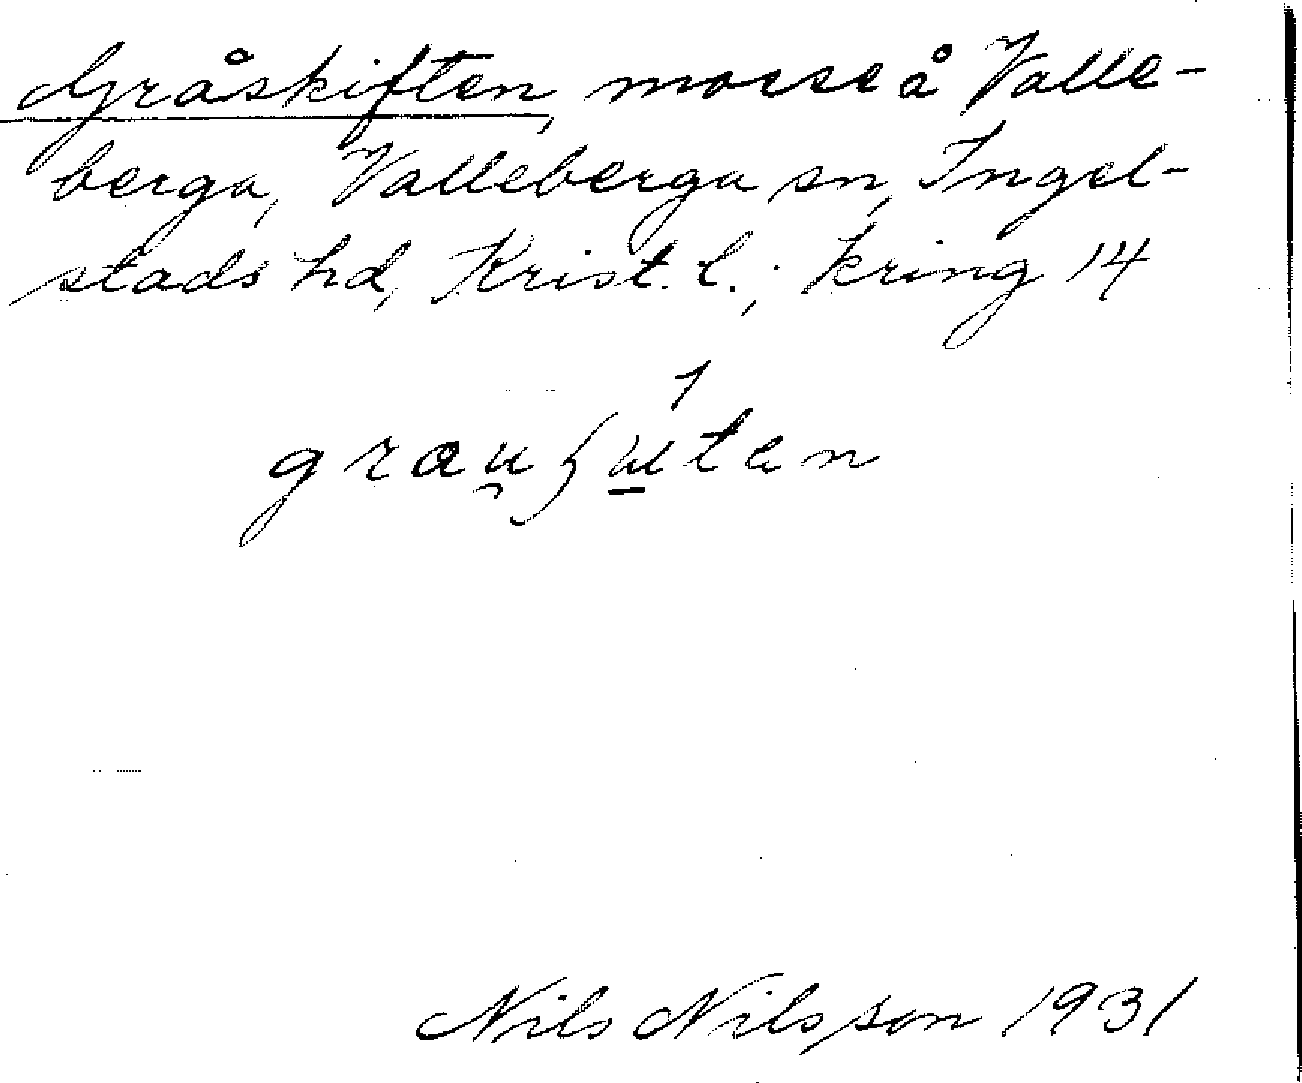 Gråskiften, mosse å Valle-
berga, Valleberga sn, Ingel-
stads hd, Krist. l.; kring 14
Nils Nilsson 1931